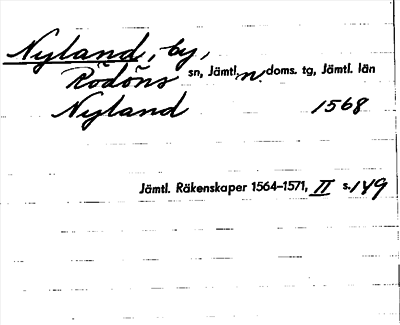 Nyland, by,
Rödöns sn, Jämtl. n. doms. tg, Jämtl. län
Nyland 1568
Jämtl. Räkenskaper 1564–1571, II s. 149